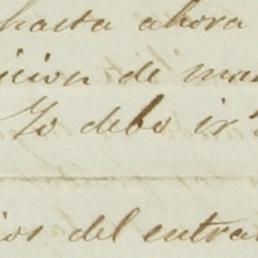 hasta ahora
icion de man
Yo debo ir
ios del entra